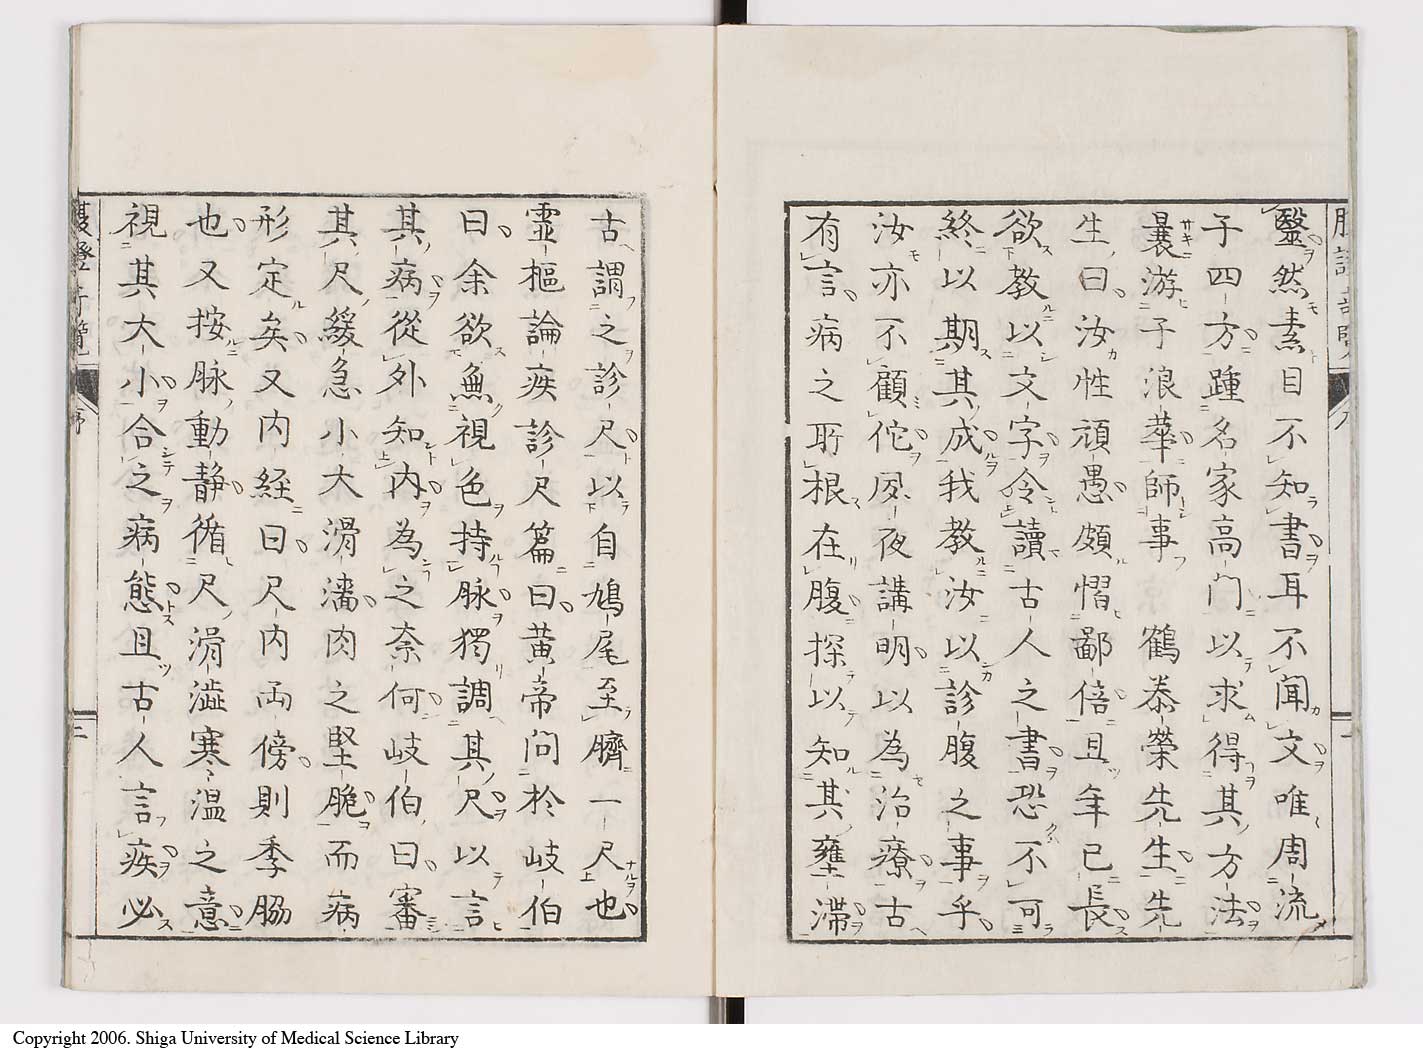 毉然素目不知書耳不聞文唯周流
子四方踵名家高门以求得其方法
曩游子浪華師事鶴泰榮先生先
生曰汝性頑愚頗慴鄙倍且年已長
欲教以文字令讀古人之書恐不可
終以期其成我教汝以診腹之事乎
汝亦不顧佗夙夜講明以為治療古
有言病之所根在腹探以知其壅滞
古謂之診尺以自鳩尾至臍一尺也
霊樞論疾診尺篇曰黄帝问於岐伯
曰余欲無視色持脉獨調其尺以言
其病從外知内為之奈何岐伯曰審
其尺緩急小大滑濇肉之堅脆而病
形定矣又内経曰尺内两傍則季脇
也又按脉動静循尺滑澁寒温之意
視其大小合之病態且古人言疾必
序
二
Copyright 2006. Shiga University of Medical Science Library